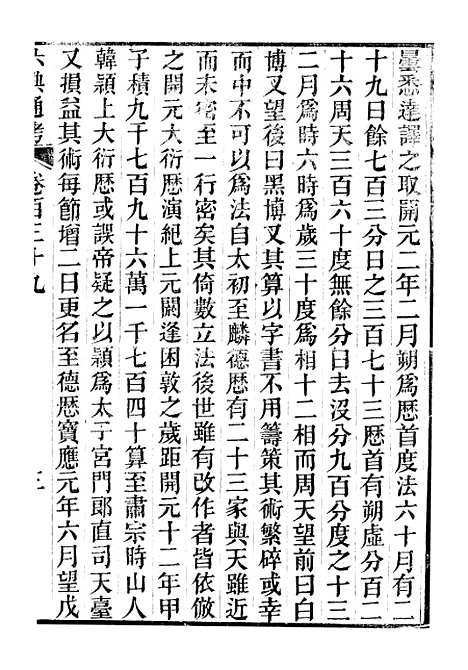 曇悉達譯之取開元二年二月朔爲曆首度法六十月有二
十九日餘七百三分日之三百七十三曆首有朔虛分百二
十六周天三百六十度無餘分日去沒分九百分度之十三
二月爲時六時爲歲三十度爲相十二相而周天望前曰白
博叉望後曰黑博叉其算以字書不用籌策其術繁碎或幸
而中不可以爲法自太初至麟德曆有二十三家與天雖近
而未密至一行密矣其倚數立法後世雖有改作者皆依倣
之開元大衍曆演紀上元閼逢困敦之歲距開元十二年甲
子積九千七百九十六萬一千七百四十算至肅宗時山人
韓頴上大衍曆或誤帝疑之以頴爲太子宮門郎直司天臺
又損益其術每節增二日更名至德曆寶應元年六月望戊
六典通考
卷百三十九
三